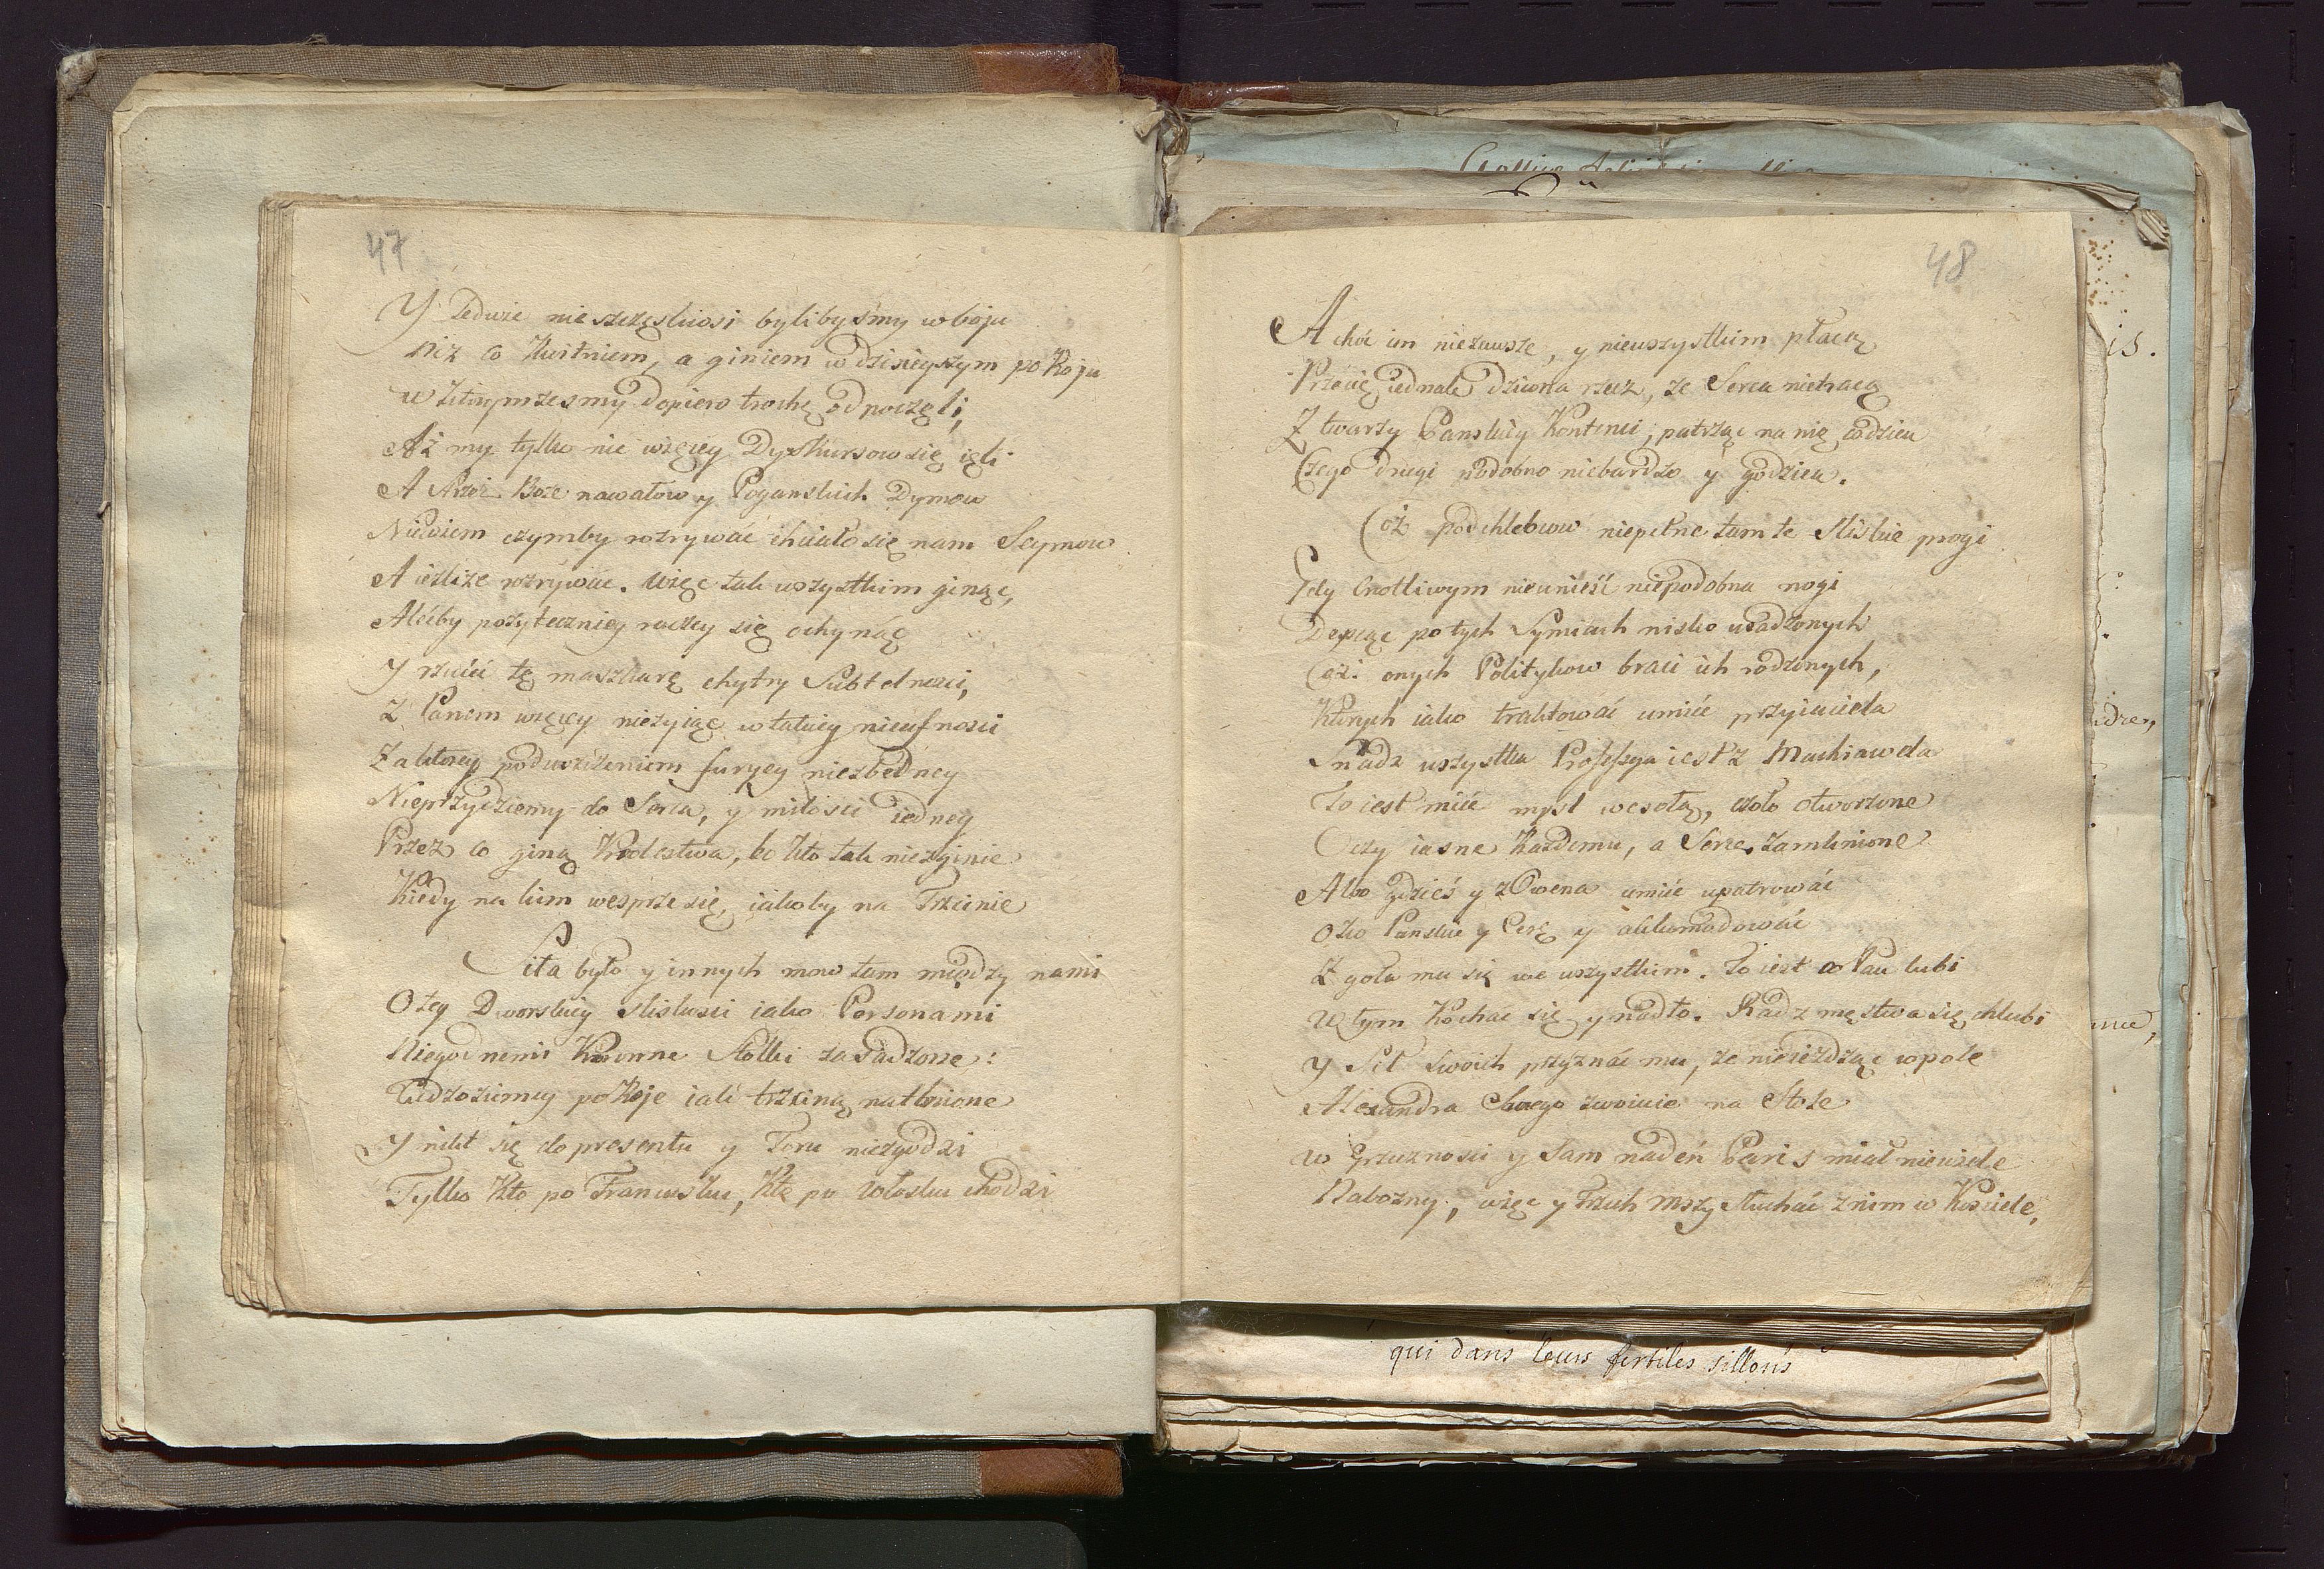 47
Y ledwie nieszczęsliwsi bylibysmy w boju
Niz co kwitniem, a giniem w dzisieyszym pokoju
W ktrymzesmy dopiero trochę odpoczęli,
Aż my tylko nic więcey Dyskursow się ięli
A Boze nawałow y Poganskich Dymow
Niewiem czymby rozrywać chciało się nam Seymow
A iezlize rozrywać. Więc tak wszystkim ginąć,
Alćiby pozyteczniey raczey się ochynąć
Y rzucić tę maszkarę chytry Subtelnosci,
Z Panem więcey nieżyiąc w takiey nieufnosci
Za ktorey podwiezieniem furyey niezbedney
Nieprzydziemy do Serca, y miłosci iedney
Przez co giną Krolestwa, bo kto tak niezginie
Kiedy na kim wesprze się, iakoby na Trzcinie
Siła było y innych mow tam między nami
O tey Dworskiey sliskosci iako Personami
Niegodnemi Koronne Stołki zasadzone:
Cudzoziemcy pokoje iak trzciną natknione
Y nikt się do presentu y Toru niezgodzi
Tylko kto po Francusku, kto po Włosku chodzi
48
A choć im niezawsze, y niewszystkim płacą
Przecię iednak dziwna rzecz, ze Serca nietracą
Z twarzy Panskiey kontenci, patrząc na nię codzien
Czego drugi podobno niebardzo y godzien.
Coż podchlebcow niepełne tam te sliskie progi
Gdy cnotliwym nieunieść niepodobna nogi
Depcąc po tych Symiach nisko usadzonych
Coż onych Politykow braci ich rodzonych,
Ktorych iako traktować umieć przyiaciela
Snadz wszystka Professya iest z Machiawela
To iest mieć mysl wesołą, czoło otworzone
Oczy iasne każdemu, a Serce zamknione
Albo gdzieś y z Owena umieć upatrować
Oko Panskie y Cerę y akkomodować
Z goła mu się we wszystkim. To iest co Pan lubi
W tym kochać się y nadto. Rad z męstwa się chlubi
Y Sił swoich przyznać mu, ze niewieżdząc w pole
Alexandra Samego zwoiuie na Stole
W Grzecznosci y Sam nadeń Paris miał niewiele
Nabozny; więc y Trzech Mszy słuchać z nim w Kosciele,
qui dans leurs fertiles sillons
is.